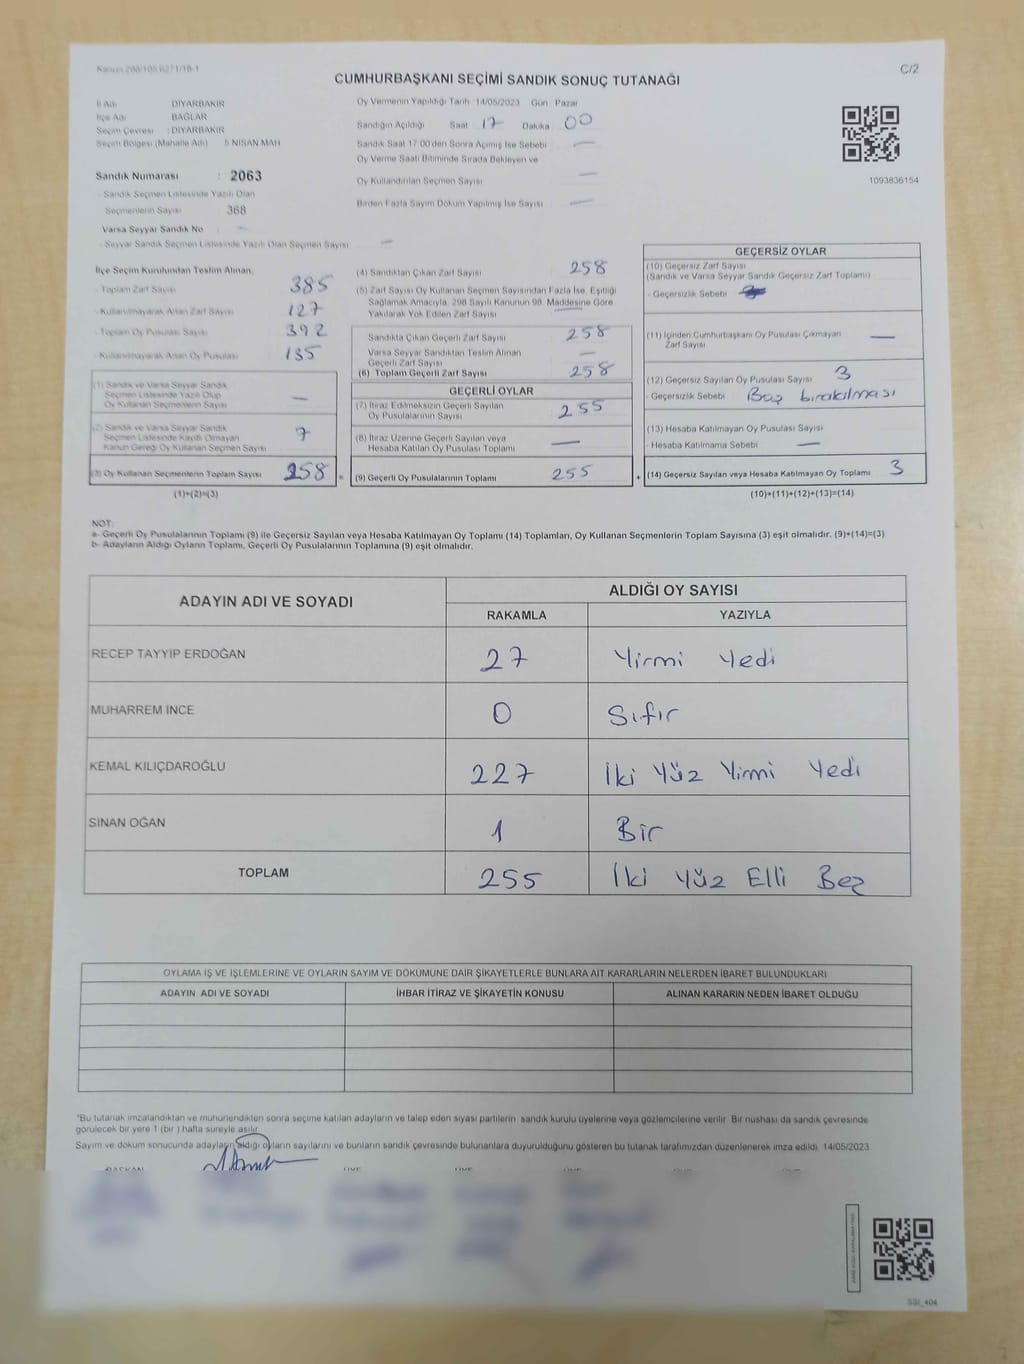 C/2
CUMHURBAŞKANI SEÇİMİ SANDIK SONUÇ TUTANAĞI
İl Adı : DİYARBAKIR
İlçe Adı : BAĞLAR
Seçim Çevresi : DİYARBAKIR
Seçim Bölgesi (Mahalle Adı) : 5 NİSAN MAH
Sandık Numarası : 2063
- Sandık Seçmen Listesinde Yazılı Olan
Seçmenlerin Sayısı : 368
Varsa Seyyar Sandık No : —
- Seyyar Sandık Seçmen Listesinde Yazılı Olan Seçmen Sayısı —
Oy Vermenin Yapıldığı Tarih 14/05/2023 Gün Pazar
Sandığın Açıldığı Saat 17 Dakika 00
Sandık Saat 17 00'den Sonra Açımış İse Sebebi —
Oy Verme Saati Bitiminde Sırada Bekleyen ve
Oy Kullandırılan Seçmen Sayısı —
Birden Fazla Sayım Döküm Yapılmış İse Sayısı —
1093836154
İlçe Seçim Kurulundan Teslim Alınan;
- Toplam Zarf Sayısı 385
- Kullanılmayarak Artan Zarf Sayısı 127
- Toplam Oy Pusulası Sayısı 392
- Kullanılmayarak Artan Oy Pusulası 135
(1) Sandık ve Varsa Seyyar Sandık
Seçmen Listesinde Yazılı Olup
Oy Kullanan Seçmenlerin Sayısı —
(2) Sandık ve Varsa Seyyar Sandık
Seçmen Listesinde Kayıtlı Olmayan
Kanun Gereği Oy Kullanan Seçmen Sayısı 7
(3) Oy Kullanan Seçmenlerin Toplam Sayısı 258 =
(1)+(2)=(3)
(4) Sandıktan Çıkan Zarf Sayısı 258
(5) Zarf Sayısı Oy Kullanan Seçmen Sayısından Fazla İse, Eşitliği
Sağlamak Amacıyla, 298 Sayılı Kanunun 98. Maddesine Göre
Yakılarak Yok Edilen Zarf Sayısı —
Sandıkta Çıkan Geçerli Zarf Sayısı 258
Varsa Seyyar Sandıktan Teslim Alınan
Geçerli Zarf Sayısı —
(6) Toplam Geçerli Zarf Sayısı 258
GEÇERLİ OYLAR
(7) İtiraz Edilmeksizin Geçerli Sayılan
Oy Pusulalarının Sayısı 255
(8) İtiraz Üzerine Geçerli Sayılan veya
Hesaba Katılan Oy Pusulası Toplamı —
(9) Geçerli Oy Pusulalarının Toplamı 255 +
GEÇERSİZ OYLAR
(10) Geçersiz Zarf Sayısı
(Sandık ve Varsa Seyyar Sandık Geçersiz Zarf Toplamı)
- Geçersizlik Sebebi
(11) İçinden Cumhurbaşkanı Oy Pusulası Çıkmayan
Zarf Sayısı —
(12) Geçersiz Sayılan Oy Pusulası Sayısı 3
- Geçersizlik Sebebi Boş bırakılması
(13) Hesaba Katılmayan Oy Pusulası Sayısı
- Hesaba Katılmama Sebebi —
(14) Geçersiz Sayılan veya Hesaba Katılmayan Oy Toplamı 3
(10)+(11)+(12)+(13)=(14)
NOT:
a- Geçerli Oy Pusulalarının Toplamı (9) ile Geçersiz Sayılan veya Hesaba Katılmayan Oy Toplamı (14) Toplamları, Oy Kullanan Seçmenlerin Toplam Sayısına (3) eşit olmalıdır. (9)+(14)=(3)
b- Adayların Aldığı Oyların Toplamı, Geçerli Oy Pusulalarının Toplamına (9) eşit olmalıdır.
ADAYIN ADI VE SOYADI ALDIĞI OY SAYISI
RAKAMLA YAZIYLA
RECEP TAYYİP ERDOĞAN 27 Yirmi Yedi
MUHARREM İNCE 0 Sıfır
KEMAL KILIÇDAROĞLU 227 İki Yüz Yirmi Yedi
SİNAN OĞAN 1 Bir
TOPLAM 255 İki Yüz Elli Beş
OYLAMA İŞ VE İŞLEMLERİNE VE OYLARIN SAYIM VE DÖKÜMÜNE DAİR ŞİKAYETLERLE BUNLARA AİT KARARLARIN NELERDEN İBARET BULUNDUKLARI
ADAYIN ADI VE SOYADI İHBAR İTİRAZ VE ŞİKAYETİN KONUSU ALINAN KARARIN NEDEN İBARET OLDUĞU
*Bu tutanak imzalandıktan ve mühürlendikten sonra seçime katılan adayların ve talep eden siyasi partilerin sandık kurulu üyelerine veya gözlemcilerine verilir. Bir nüshası da sandık çevresinde
görülecek bir yere 1 (bir ) hafta süreyle asılır.
Sayım ve döküm sonucunda adayların aldığı oyların sayılarını ve bunların sandık çevresinde bulunanlara duyurulduğunu gösteren bu tutanak tarafımızdan düzenlenerek imza edildi. 14/05/2023
SSI_404